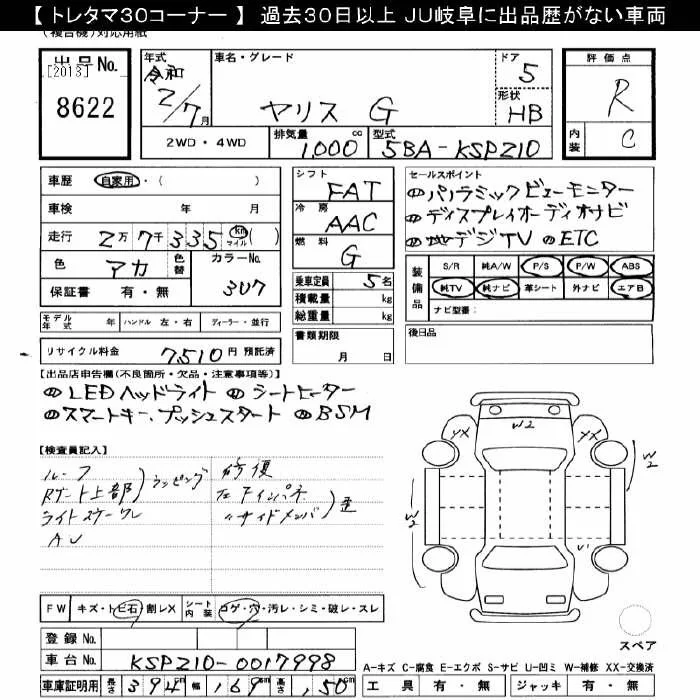 【 トレタマ30コーナー 】 過去30日以上 JU岐阜に出品歴がない車両
(複合機)対応用紙
出品No.
[2013]
8622
年式 令和 2/7月
車名・グレード
ヤリス G
ドア 5
形状 HB
評価点
R
内装 C
2WD・4WD
排気量 1,000 cc
型式 5BA-KSPZ10
車歴 自家用・( )
車検 年 月
走行 2万7千335 km マイル ( )
色 アカ
色替
カラーNo. 3U7
保証書 有・無
モデル年式 年 ハンドル 左・右 ディーラー・並行
リサイクル料金 7510円 預託済
シフト FAT
冷房 AAC
燃料 G
乗車定員 5名
積載量 kg
総重量 kg
書類期限
月 日
セールスポイント
のパノラミックビューモニター
のディスプレイオーディオナビ
の地デジTV のETC
装備品
S/R 純A/W P/S P/W ABS
純TV 純ナビ 革シート 外ナビ エアB
ナビ型番:
後日品
【出品店申告欄(不良箇所・欠品・注意事項等)】
のLEDヘッドライト のシートヒーター
のスマートキー、プッシュスタート のBSM
【検査員記入】
ルーフ
Rゲート上部
ラッピング
AU
修復
左Fインパネ
〃サイドメンバ
歪
YX W2 YX
W2
W2
U1
FW キズ・トビ石・割レX
シート内装 コゲ・穴・汚レ・シミ・破レ・スレ
スペア
登録No.
車台No. KSPZ10-0017998
車庫証明用 長さ 394cm 幅 169cm 高さ 150cm
A-キズ C-腐食 E-エクボ S-サビ U-凹ミ W-補修 XX-交換済
工具 有・無 ジャッキ 有・無